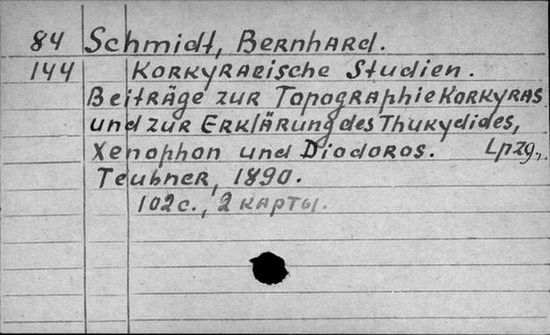 84 Schmidt, Bernhard.
144 Korkyraeische Studien.
Beiträge zur Topographie Korkyras
und zur Erklärung des Thukydides,
Xenophon und Diodoros. Lpzg.,
Teubner, 1890.
102 с., 2 карты.